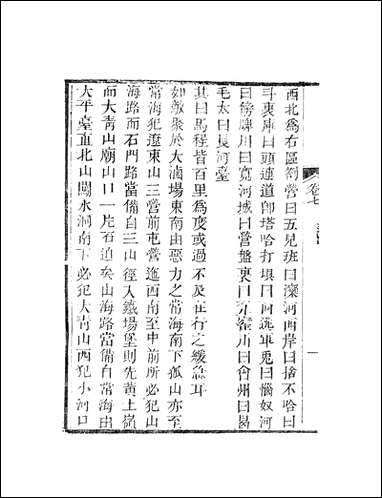 西北爲右區劄營曰五見班曰灤河兩岸曰捨不哈曰
斗裏庫曰頭連道卽塔哈打垻曰河逃軍兎曰惱奴河
曰傍牌川曰寬河城曰營盤裏曰川曰會州曰曷
毛太曰長河臺
其曰馬程皆百里爲度或過不及在行之緩急耳
如敵聚於大滷場東南由惡力之常海南下孤山亦至
常海犯遼東山三營前屯營迤西南至中前所必犯山
海路而石門路當備自三山徑入鐵場堡則先黃土嶺
而大靑山廟山口一片石迫矣山海路當備自常海由
大平臺直北山關水洞南下必犯大靑山西犯小河口
卷七
一